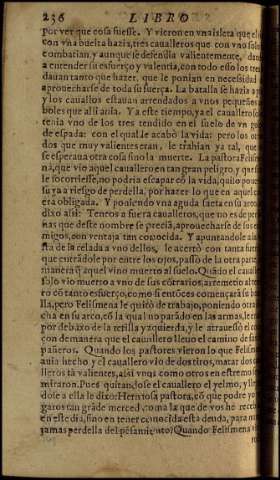 236 LIBRO
por ver que cosa fuesse. Y vieron en vna isleta que el
con vna buelta hazia, tres caualleros que con vno solo
combatian, y aunque se defendia valientemente, dando
a entender su esfuerço y valentia, con todo esso los tres
dauan tanto que hazer, que le ponian en necesidad
aprouecharse de toda su fuerça. La batalla se hazia a
y los cauallos estauan arrendados a vnos pequeños
boles que alli auia. Ya este tiempo, ya el cauallero so
tenia vno de los tres tendido en el suelo de vn
de espada: con el qual le acabò la vida: pero los otros
dos que muy valientes eran, le trahian ya tal, que
se esperaua otra cosa sino la muerte. La pastora Felis
na, que vio aquel cauallero en tan gran peligro, y que si
le socorriesse, no podria escapar cō la vida, quiso pon
suya a riesgo de perdella, por hazer lo que en aquel
era obligada. Y poniendo vna aguda saeta en su arco
dixo assi: Teneos a fuera caualleros, que no es de per
nas que deste nombre se precia, aprouecharse de sus ene
migos, con ventaja tan conocida. Y apuntandole a la
sta de la celada a vno dellos, le acertò con tanta
que entrādole por entre los ojos, passò de la otra par
manera q̃ aquel vino muerto al suelo. Quādo el cauall
solo vio muerto a vno de sus cōtrarios, arremetio al
ro cō tanto esfuerço, como si entōces començara su ba
lla, pero Felismena le quitò de trabajo, poniendo otra
cha en su arco, cō la qual no parādo en las armas, le en
por debaxo de la tetilla yzquierda, y le atrauesso el co
con demanera que el cauallero lleuo el camino de sus
pañeros. Quando los pastores vieron lo que Felis
auia hecho, y el cauallero vio de dos tiros, matar dos
lleros tā valientes, assi vnos como otros en estremo
miraron. Pues quitandose el cauallero el yelmo, y lle
dose a ella le dixo: Hermosa pastora, cō que podre yo
garos tan grāde merced, como la que de vos he receb
en este dia, sino en tener conocida esta deuda, para n
jamas perdella del pēsamiento? Quando Felismena vi